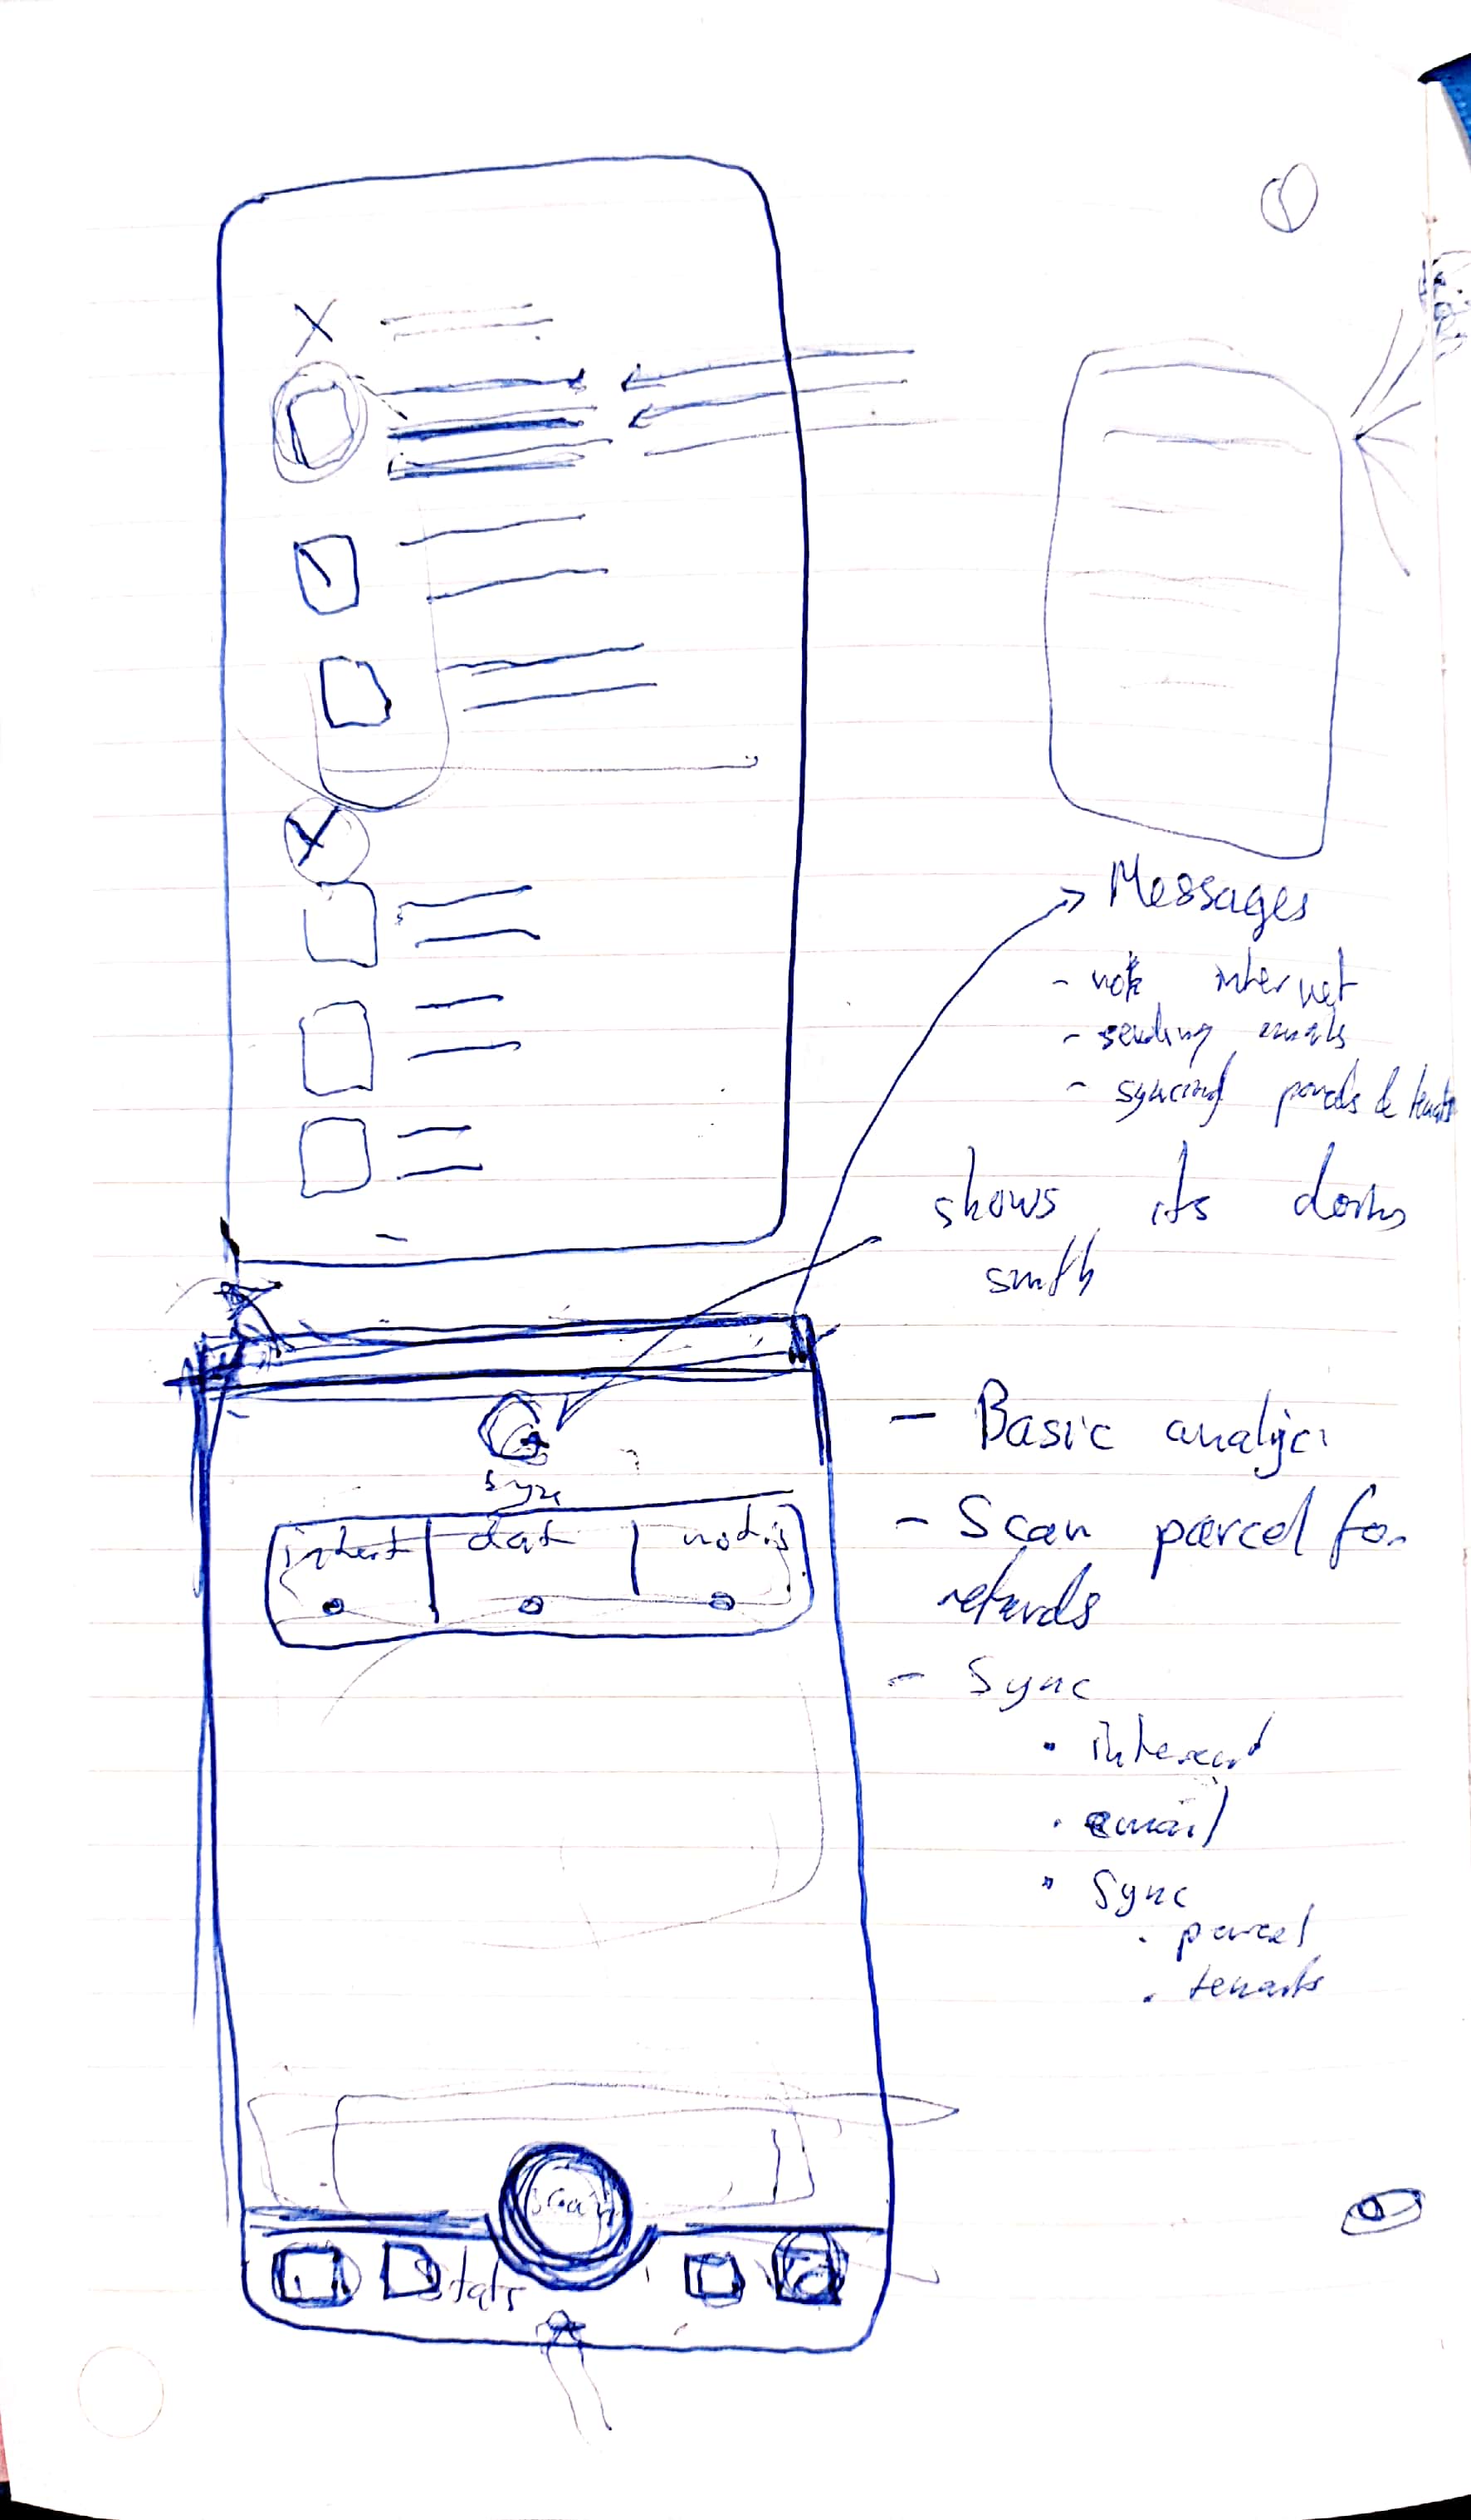 Messages
- internet
- sending emails
- syncing parcels & tenants
shows its doing
smth
sync
internet
notif
- Basic
- Scan parcel for
- Sync
• internet
• email
• Sync
• parcel
• tenants
scan
Stats